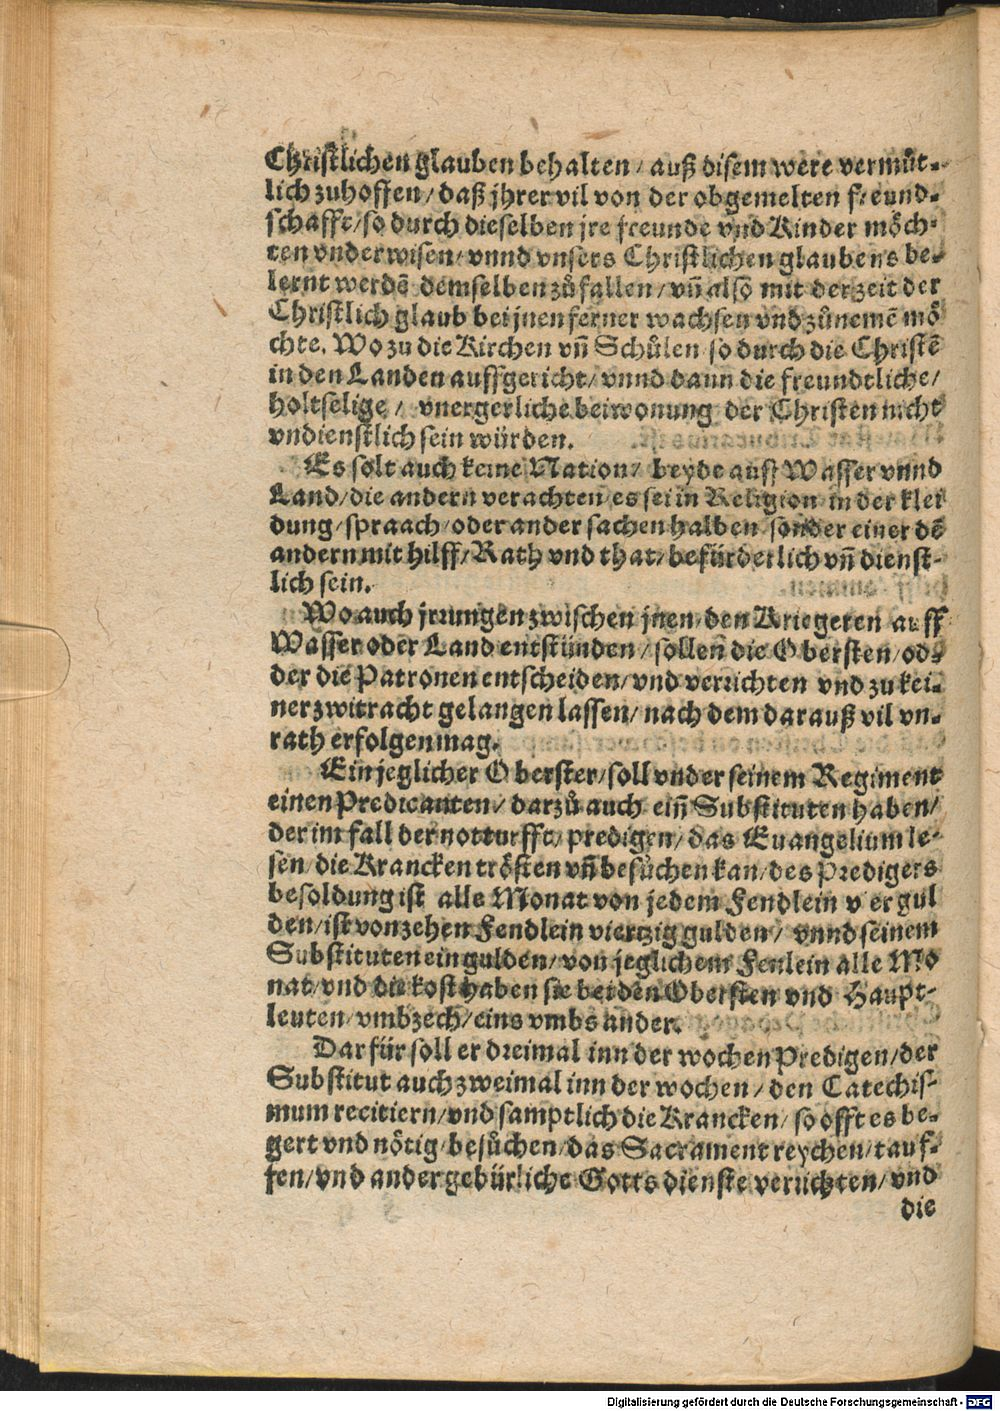 Christlichen glauben behalten / auß disem were vermůt-
lich zuhoffen / daß jhrer vil von der obgemelten freund-
schafft / so durch dieselben jre freunde vnd Kinder möch-
ten vnderwisen / vnnd vnsers Christlichen glaubens be-
lernt werdē demselben zůfallen / vñ also mit der zeit der
Christlich glaub bei jnen ferner wachsen vnd zůnemē mö
chte. Wo zu die Kirchen vñ Schůlen so durch die Christē
in den Landen auffgericht / vnnd dann die freundtliche /
holtselige / vnergerliche beiwonung der Christen nicht
vndienstlich sein würden.
Es solt auch keine Nation / beyde auff Wasser vnnd
Land / die andern verachten es sei in Religion in der klei
dung / spraach / oder ander sachen halben sonder einer dē
andern mit hilff / Rath vnd that / befürderlich vñ dienst-
lich sein.
Wo auch jrrungen zwischen jnen den Kriegeren auff
Wasser oder Land entstünden / sollen die Obersten / od-
der die Patronen entscheiden / vnd verrichten vnd zu kei-
ner zwitracht gelangen lassen / nach dem darauß vil vn-
rath erfolgen mag.
Ein jeglicher Oberster / soll vnder seinem Regiment
einen Predicanten / darzů auch eiñ Substituten haben /
der im fall der notturfft / predigen / das Euangelium le-
sen / die Krancken trösten vñ besůchen kan / des Predigers
besoldung ist alle Monat von jedem Fendlein vier gul
den / ist von zehen Fendlein viertzig gulden / vnnd seinem
Substituten ein gulden / von jeglichem Fenlein alle Mo
nat / vnd die kost haben sie bei den Obersten vnd Haupt-
leuten / vmbzech / eins vmbs ander.
Darfür soll er dreimal inn der wochen Predigen / der
Substitut auch zweimal inn der wochen / den Catechis-
mum recitiern / vnd samptlich die Krancken / so offt es be-
gert vnd nötig / besůchen / das Sacrament reychen / tauf-
fen / vnd ander gebürliche Gottsdienste verrichten / vnd
die
Digitalisierung gefördert durch die Deutsche Forschungsgemeinschaft - DFG